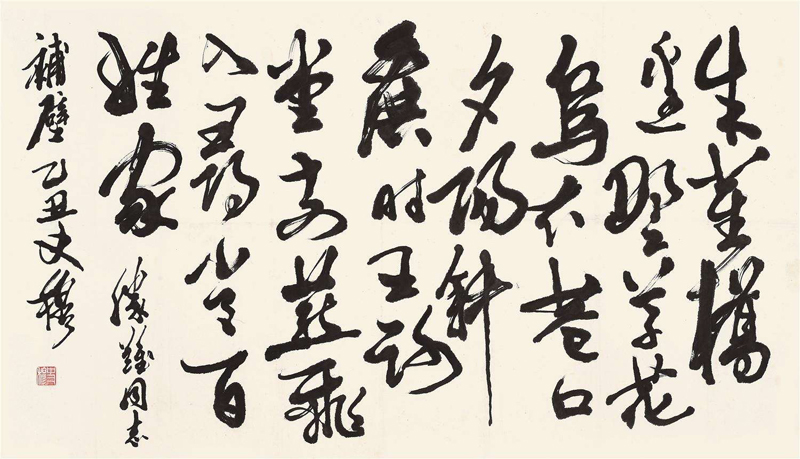 朱雀橋
邊野草花
烏衣巷口
夕陽斜
舊時王謝
堂前燕飛
入尋常百
姓家
同志
補壁 乙丑史穆